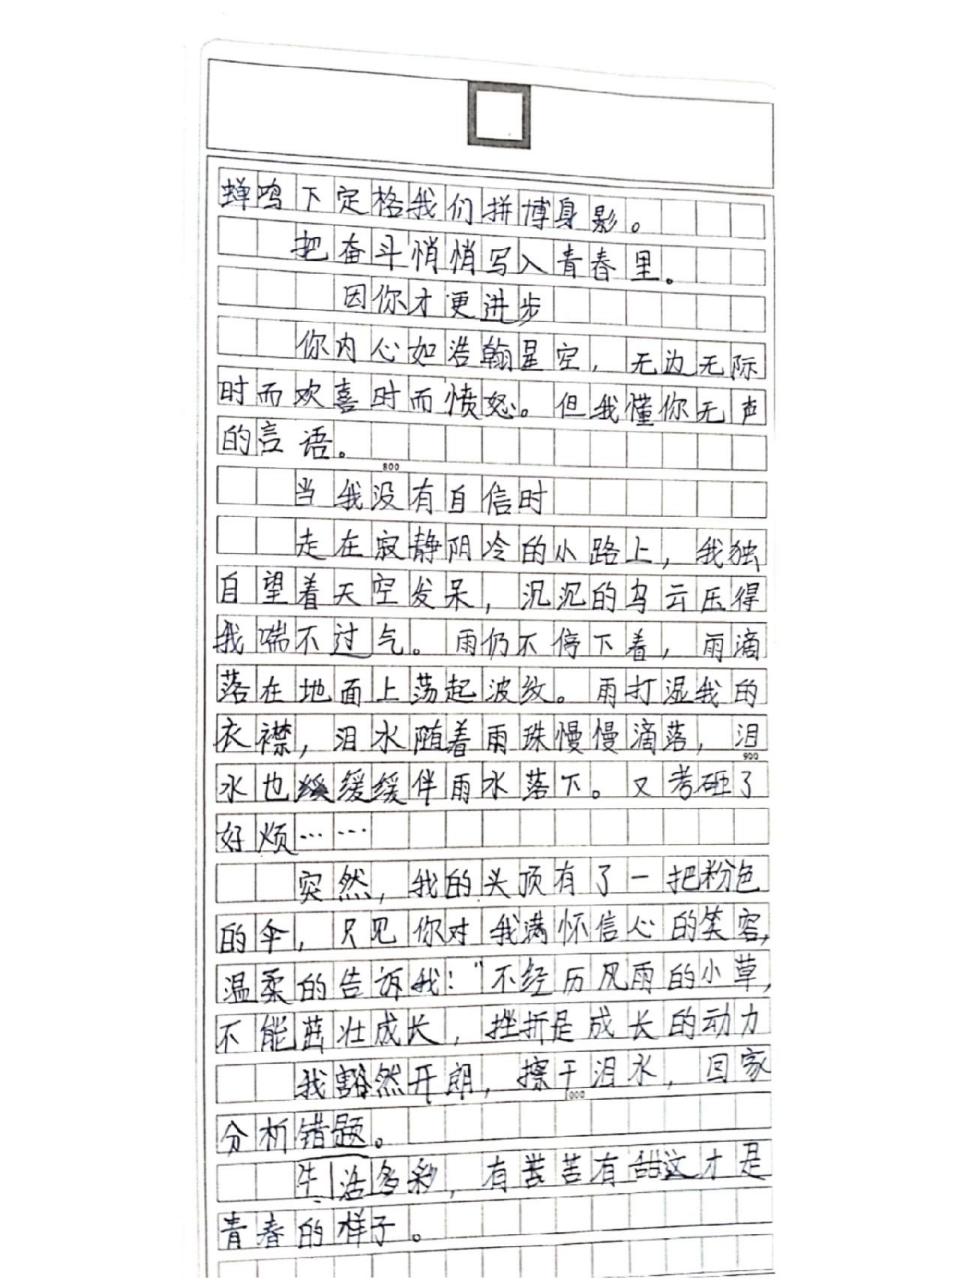 蝉鸣下定格我们拼博身影。
把奋斗悄悄写入青春里。
因你才更进步
你内心如浩翰星空，无边无际
时而欢喜时而愤怒。但我懂你无声
的言语。
800
当我没有自信时
走在寂静阴冷的小路上，我独
自望着天空发呆，沉沉的乌云压得
我喘不过气。雨仍不停下着，雨滴
落在地面上荡起波纹。雨打湿我的
衣襟，泪水随着雨珠慢慢滴落，泪
900
水也缓缓伴雨水落下。又考砸了
好烦……
突然，我的头顶有了一把粉色
的伞，只见你对我满怀信心的笑容，
温柔的告诉我："不经历风雨的小草，
不能茁壮成长，挫折是成长的动力
我豁然开朗，擦干泪水，回家
1000
分析错题。
生活多彩，有苦有甜这才是
青春的样子。